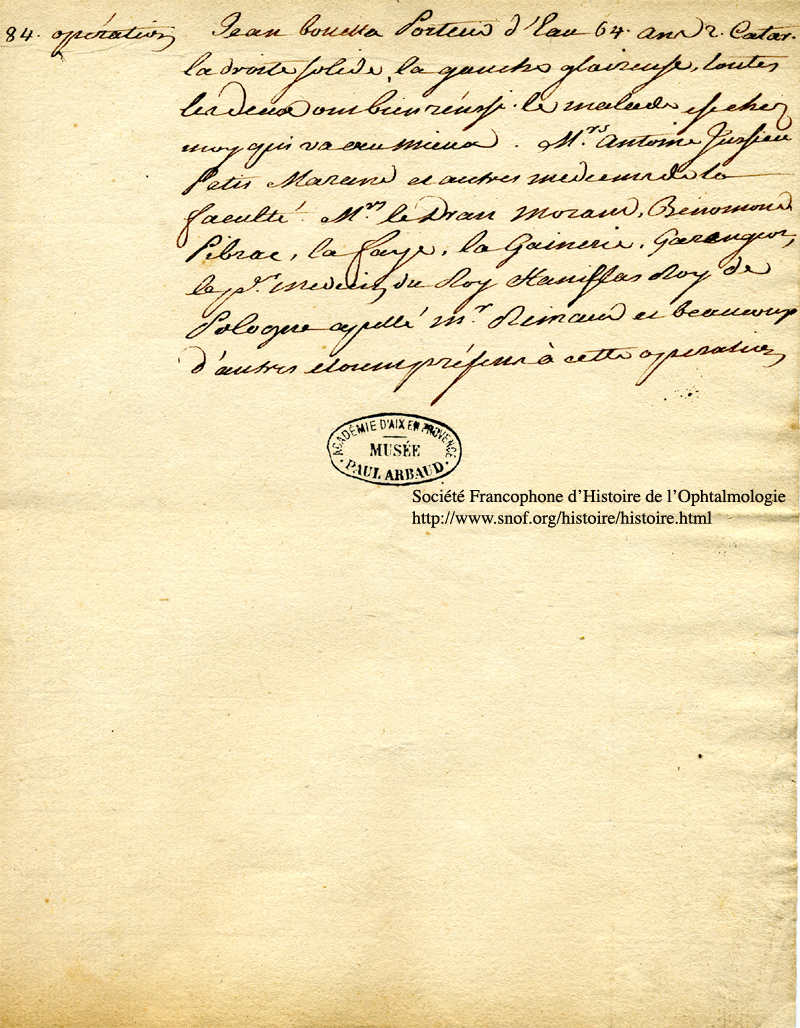 84. opération Jean Porteur d'Eau 64. ans 2. Catar.
la droite solide, la gauche glaireuse, toutes
les deux ont bien réussi. le malade est chez
moy qui va au mieux. M.rs Antoine Jussieu
Petit Marand et autres medecins de la
faculté. M.rs le Dran Morand,
Pibrac, la faye, la Gainerie, Garangeot,
le p.r medecin du Roy Stanislas Roy de
Pologne apellé m.r et beaucoup
d'autres etoient présens à cette operation
ACADÉMIE D'AIX EN PROVENCE
MUSÉE
PAUL ARBAUD
Société Francophone d'Histoire de l'Ophtalmologie
http://www.snof.org/histoire/histoire.html